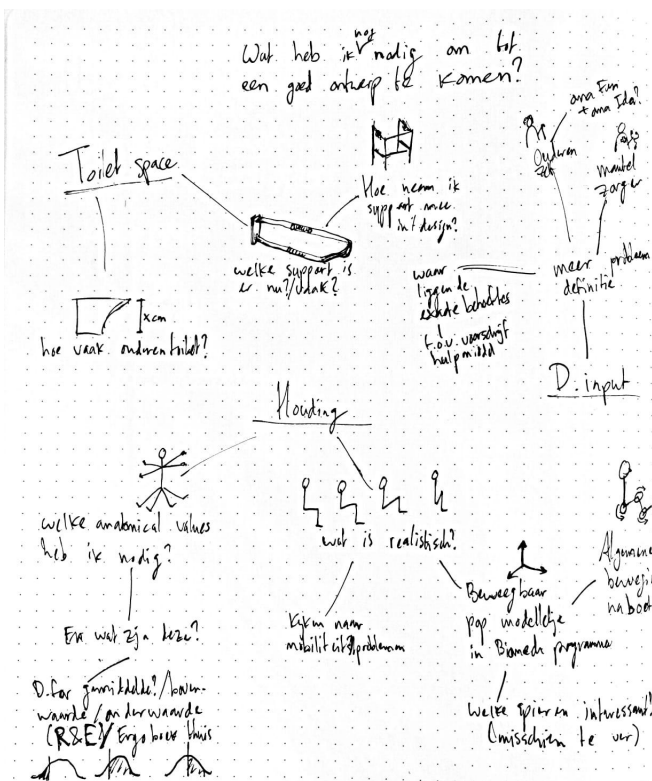 Wat heb ik nog nodig om tot
een goed ontwerp te komen?
Toilet space
Hoe neem ik
support mee
in't design?
welke support is
er nu?/vaak?
x cm
hoe vaak ouderen toilet?
oma Fun
+ oma Ida?
Ouderen
zelf
mantel
zorger
meer probleem
definitie
waar
liggen de
exacte behoeftes
t.o.v. voorschrift
hulpmiddel
D. input
Houding
welke anatomical values
heb ik nodig?
En wat zijn deze?
D. for gemiddelde?/boven-
waarde/onderwaarde
(R&E)/Ergoboek thuis
wat is realistisch?
Kijken naar
mobiliteitsproblemen
Beweegbaar
pop modelletje
in Biomech programma
Algemene
welke spieren interessant?
(misschien te ver)